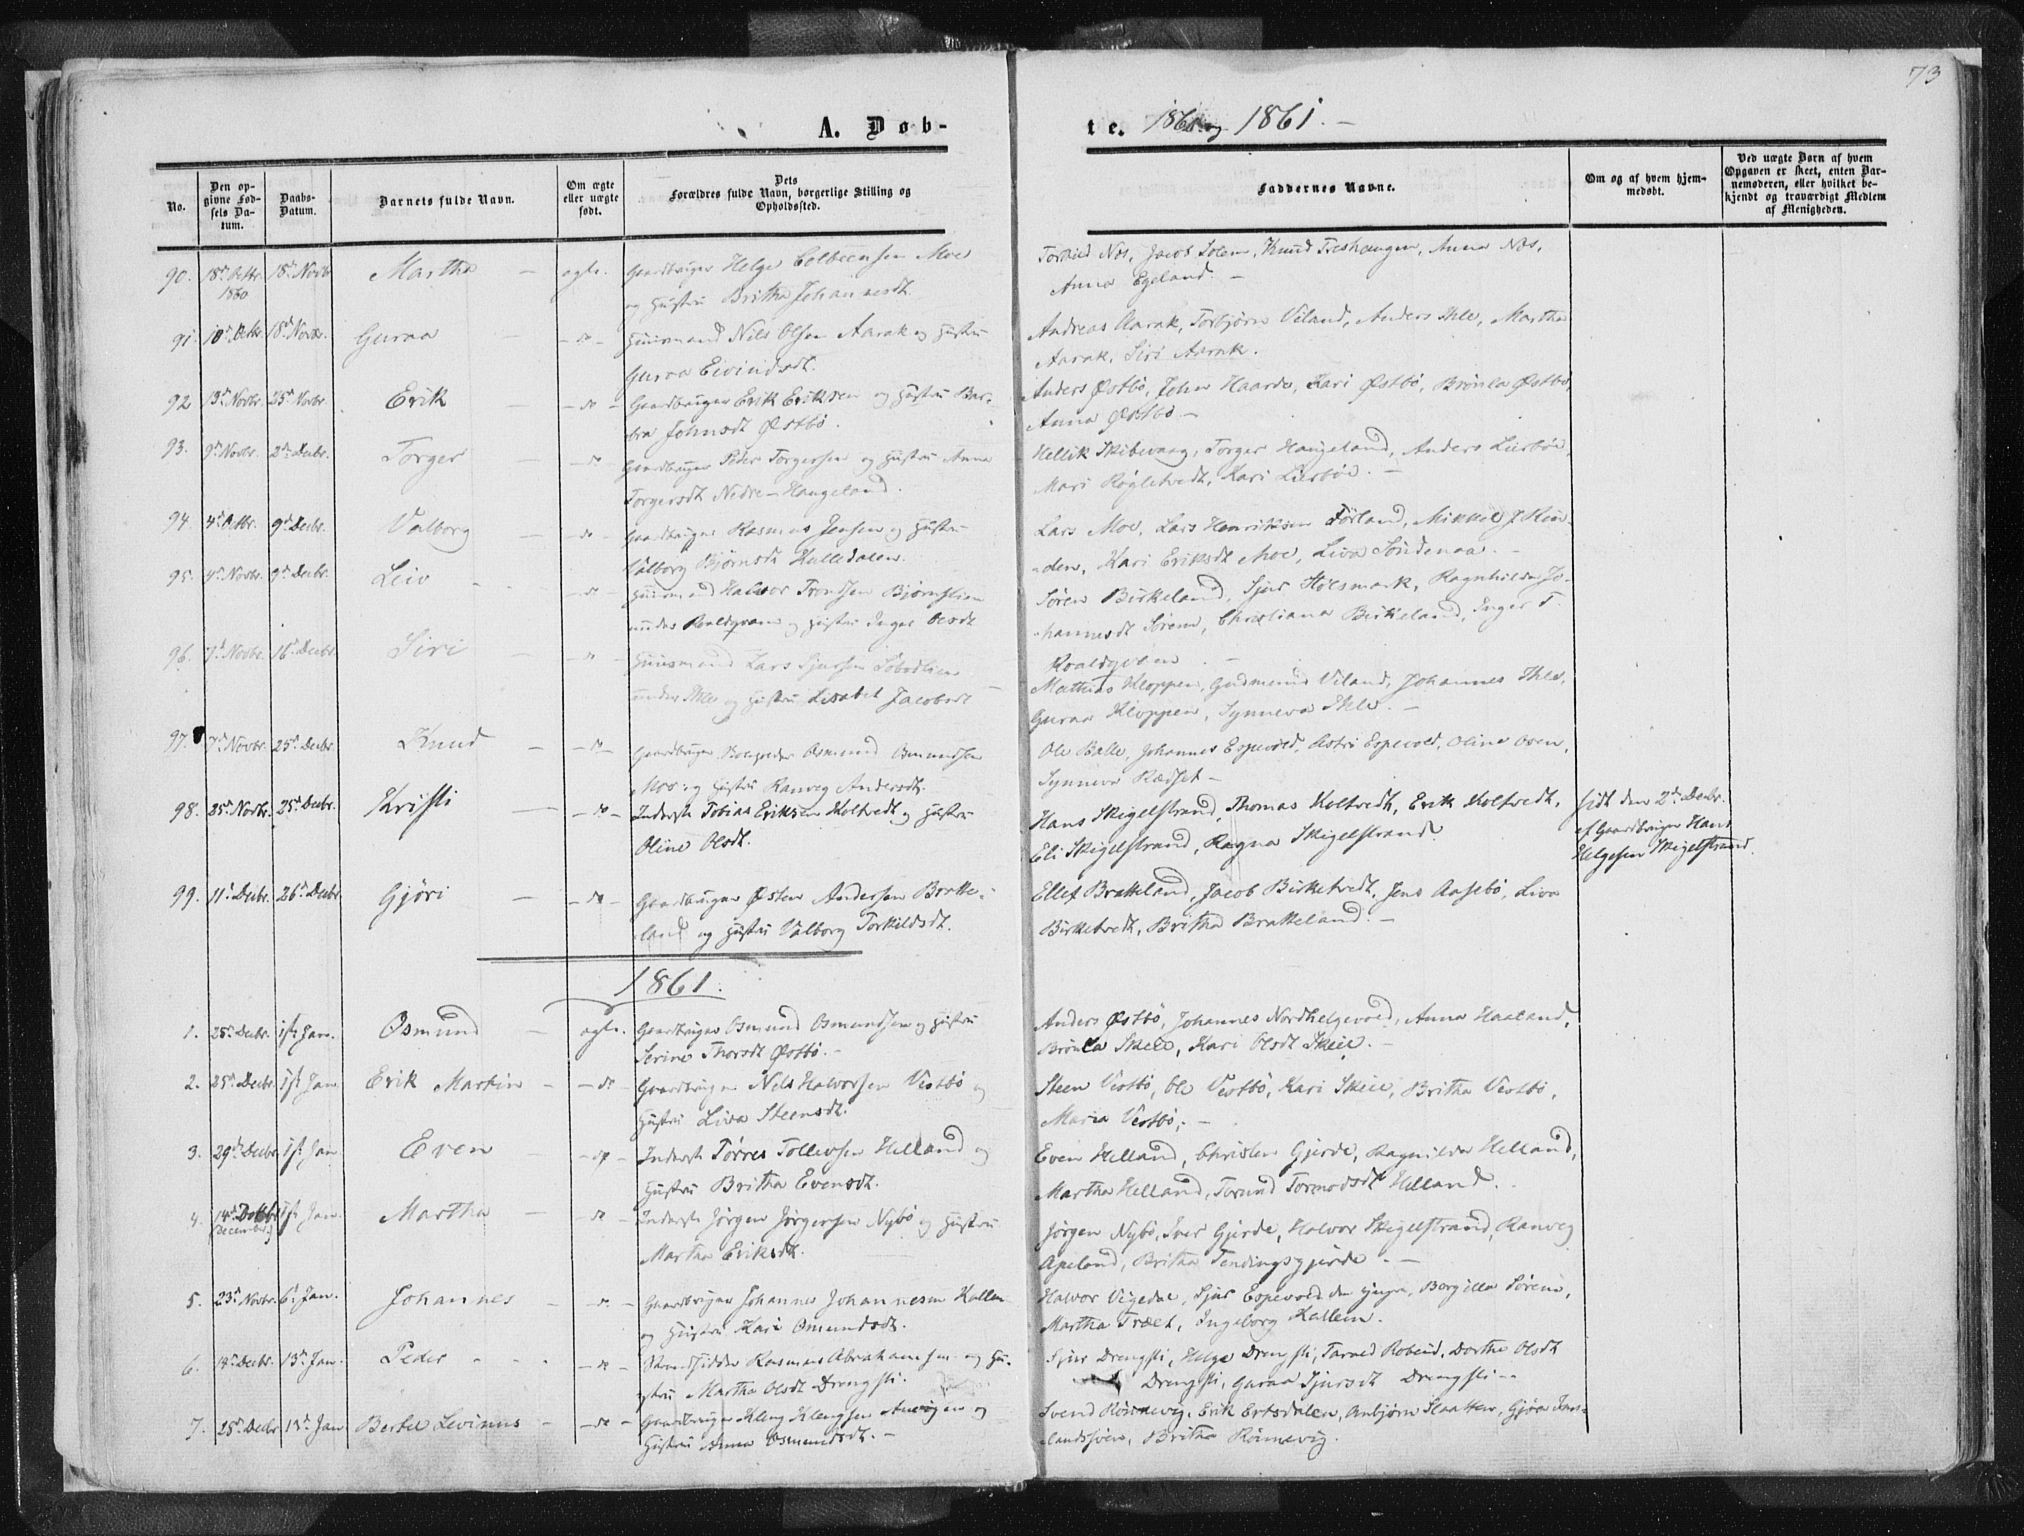 73
A. Døb-
te. 1860 og 1861. —
No.
Den op-
givne Fød-
sels Da-
tum.
Daabs-
Datum.
Barnets fulde Navn.
Om ægte
eller uægte
født.
Dets
Forældres fulde Navn, borgerlige Stilling og
Opholdssted.
Faddernes Navne.
Om og af hvem hjem-
medøbt.
Ved uægte Børn af hvem
Opgaven er skeet, enten Bar-
nemoderen, eller hvilket be-
kjendt og troværdigt Medlem
af Menigheden.
90. 18de Octbr. 18de Novbr. Martha — ægte. Gaardbruger Helge Colbeensen Moe
1860 og Hustru Britha Johannesdt.
Torkild Næs, Jacob Solem, Knud Treshaugen, Anna Næs,
Anna Egeland. —
91. 10de Octbr. 18de Novbr. Guraa — do — Huusmand Nils Olsen Aarak og Hustru
Guroa Eivindsdt.
Andreas Aarak, Torbjørn Viland, Anders Ihle, Martha
Aarak, Siri Aarak.
92 13de Novbr. 25de Novbr. Erik — do — Gaardbruger Erik Eriksen og Hustru Bar-
bra Johnsdt Østbö.
Anders Østbö, John Haarde, Kari Østbö, Brönla Østbö,
Anna Østbö —
93. 9de Novbr. 2den Decbr. Torger — do Gaardbruger Peder Torgersen og Hustru Anna
Torgersdt Nedre-Haugeland.
Hellik Skibevaag, Torger Haugeland, Anders Lierbøe,
Mari Røgletvedt, Kari Lierbøe. —
94. 4de Octbr. 9de Decbr. Valborg — do — Gaardbruger Rasmus Jensen og Hustru
Valborg Bjørnsdt Halledalen.
Lars Moe, Lars Henriksen Førland, Mikkel
den, Kari Eriksdt Moe, Liva Søndenaa. —
95. 4de Novbr. 9de Decbr. Leiv — do — Huusmand Halvor Trondsen Bjørnslien
under Roaldqvam og Hustru Inger Olsdt
Søren Birkeland, Sjur Holsmark, Ragnhilda Jo-
hannesdt Sørem, Christiana Birkeland, Inger T.
Roaldqvam. —
96. 7de Novbr. 16de Decbr. Siri — do — Huusmand Lars Sjursen
under Ihle og Hustru Lisabet Jacobsdt
Mathias Kloppen, Gudmund Viland, Johannes Ihle,
Guraa Kloppen, Synneva Ihle. —
97. 7de Novbr. 25de Decbr. Knud — do — Gaardbruger Osmund Osmundsen
Moe og Hustru Ranveg Andersdt.
Ole Balle, Johannes Espevold, Astri Espevold, Oline Osen,
Synneva Rædset —
98. 25de Novbr. 25de Decbr. Kristi — do — Inderste Tobias Eriksen Holtvedt og Hustru
Oline Olsdt.
Hans Skigelstrand, Thomas Holtvedt, Erik Holtvedt,
Eli Skigelstrand, Ragna Skigelstrand.
hjdt den 2den Decbr.
af Gaardbruger Hans
Helgesen Skigelstrand.
99. 11te Decbr. 26de Decbr. Gjøri — do — Gaardbruger Østen Andersen Bratte-
land og Hustru Valborg Torkildsdt.
Ellef Bratteland, Jacob Birketvedt, Jens Aasebö, Liva
Birketvedt, Britha Bratteland. —
1861.
1. 25de Decbr. 1ste Jan. Osmund — ægte. Gaardbruger Osmund Osmundsen og Hustru
Serine Thorsdt Østbö. —
Anders Østbö, Johannes Nordhelgevold, Anna Haaland,
Brönla Skeie, Kari Olsdt Skeie. —
2. 25de Decbr. 1ste Jan Erik Martin — do — Gaardbruger Nils Halvorsen Vestbö og
Hustru Liva Steensdt.
Steen Vestbö, Ole Vestbö, Kari Skeie, Britha Vestbö,
Maria Vestbö. —
3. 29de Decbr 1ste Jan Even — do — Inderste Törres Tollevsen Helland og
Hustru Britha Evensdt.
Even Helland, Christen Gjerde, Ragnilda Helland,
Martha Helland, Torund Tormodsdt Helland.
4. 14de Octbr 1ste Jan Martha — do — Inderste Jørgen Jørgensen Nybö og Hustru
(December) Martha Eriksdt.
Jørgen Nybö, Iver Gjerde, Halvor Skigelstrand, Ranveg
Apeland, Britha Tendingsgjerde. —
5. 23de Novbr. 6te Jan. Johannes — do — Gaardbruger Johannes Johannesen Hallen
og Hustru Kari Omundsdt.
Halvor Vigedal, Sjur Espevold den yngre, Bergilla Sørem,
Martha Træet, Ingeborg Hallem.
6. 14de Decbr. 13de Jan. Peder — do — Strandsidder Rasmus Abrahamsen og Hu-
stru Martha Olsdt Drengsti.
Sjur Drengsti, Helga Drengsti, Tarald Robeud, Dorthe Olsdt
Drengsti, Guraa Sjursdt Drengsti —
7. 25de Decbr 13de Jan Bertel Levinus — do — Gaardbruger Kleng Klengsen Anvigen og
Hustru Anna Osmundsdt. —
Svend Rönnevig, Erik Ertsdalen, Anbjørn Slaatten, Gjøa
landsøen, Britha Rönnevig.